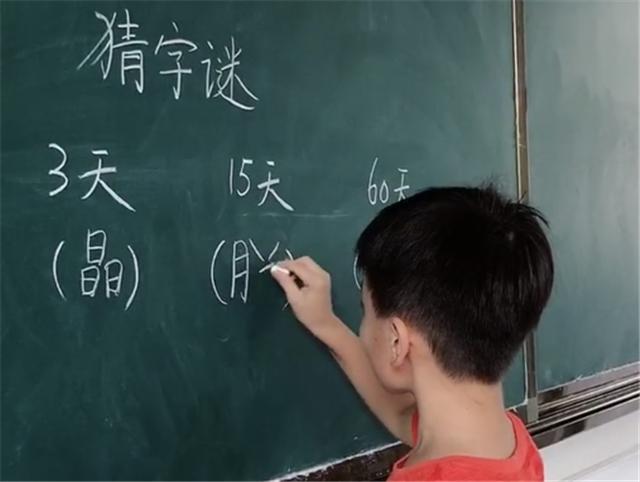 猜字谜
3天 15天 60天
(晶) (月丷) (